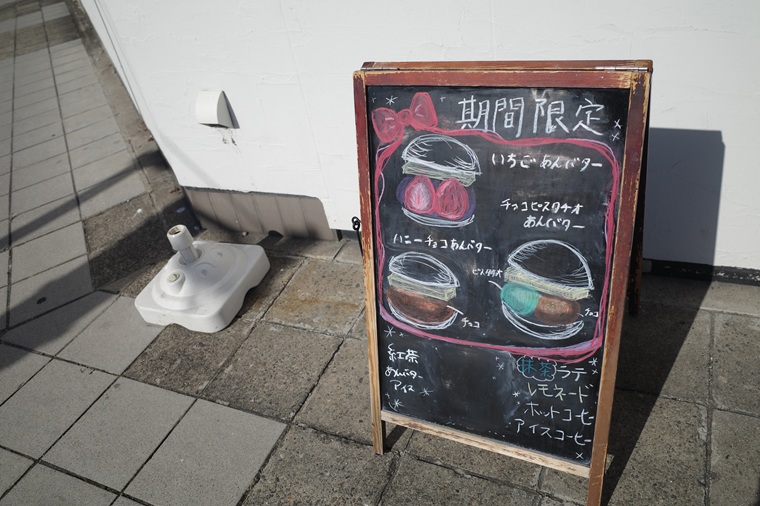 期間限定
いちごあんバター
チョコピスタチオ
あんバター
ハニーチョコあんバター
ピスタチオ
チョコ
チョコ
紅茶
あんバター
アイス
抹茶ラテ
レモネード
ホットコーヒー
アイスコーヒー